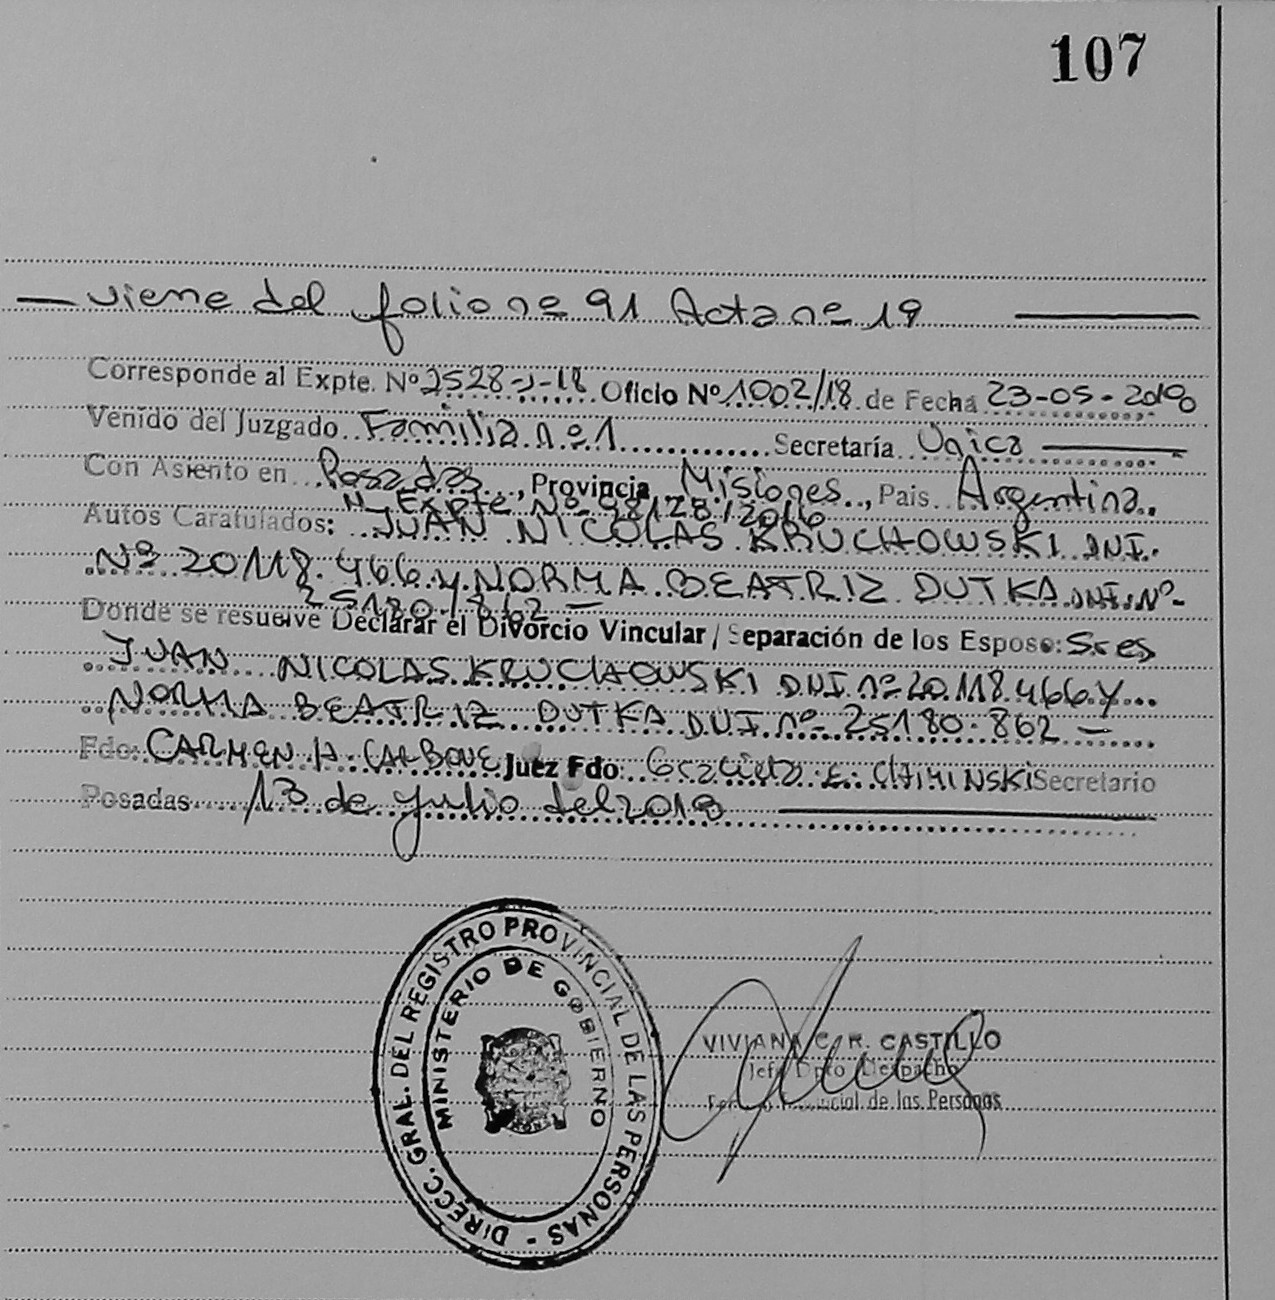 107
viene del folio nº 91 Acta nº 19
Corresponde al Expte. Nº 2528-J-18 Oficio Nº 1002/18 de Fecha 23-05-2018
Venido del Juzgado Familia nº 1 Secretaría Unica
Con Asiento en Posadas, Provincia Misiones, Pais Argentina.
" Expte Nº 98128/2016
Autos Caratulados: JUAN NICOLAS KRUCHOWSKI DNI.
Nº 20118.466 y NORMA BEATRIZ DUTKA DNI. Nº
25180.862 -
Donde se resuelve Declarar el Divorcio Vincular / Separación de los Esposo: Sres
JUAN NICOLAS KRUCHOWSKI DNI nº 20.118.466 y
NORMA BEATRIZ DUTKA DNI nº 25180.862 -
Fdo: CARMEN H. CARBONE Juez Fdo: Graciela E. CHIMINSKI Secretario
Posadas 13 de julio del 2018
DIRECC. GRAL. DEL REGISTRO PROVINCIAL DE LAS PERSONAS -
MINISTERIO DE GOBIERNO
VIVIANA C. R. CASTILLO
Jefe Dpto Despacho
Provincial de las Personas